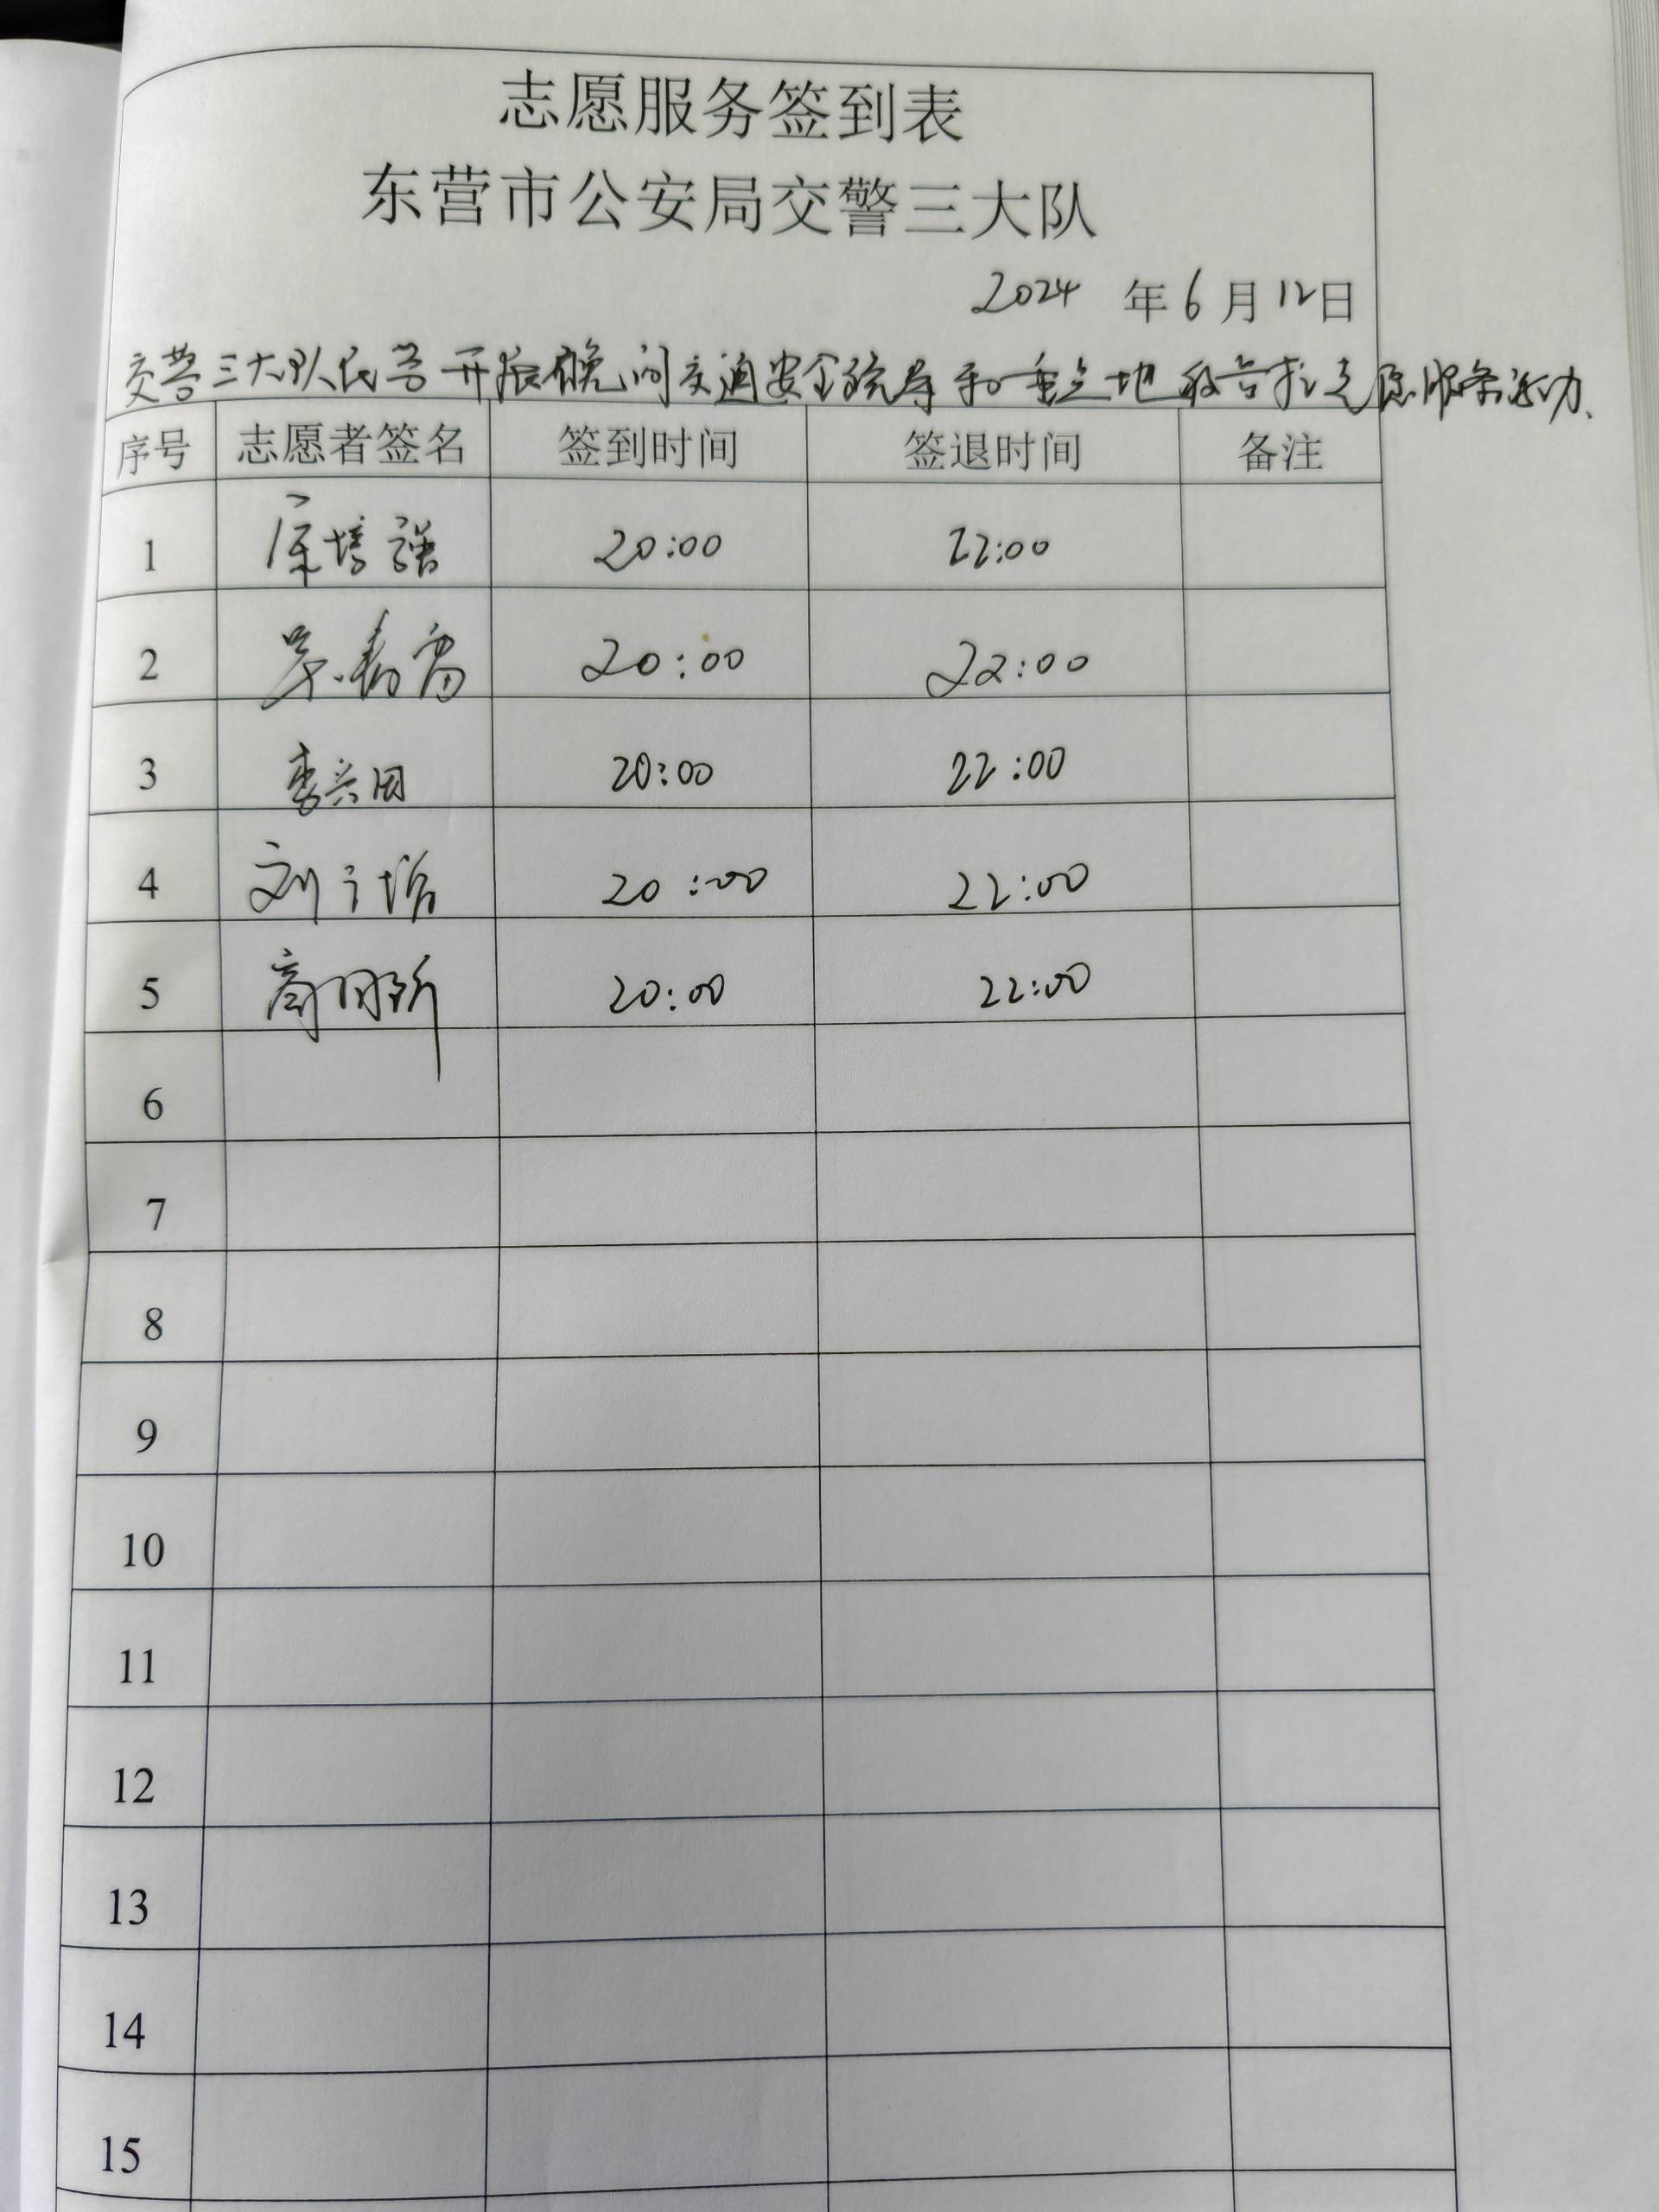 志愿服务签到表
东营市公安局交警三大队
2024 年 6 月 12 日
交警三大队民警开展夜晚间交通安全疏导和重点地段吉扎志愿服务活动.
序号 志愿者签名 签到时间 签退时间 备注
1 培强 20:00 22:00
2 20:00 22:00
3 李兴田 20:00 22:00
4 刘 20:00 22:00
5 20:00 22:00
6
7
8
9
10
11
12
13
14
15